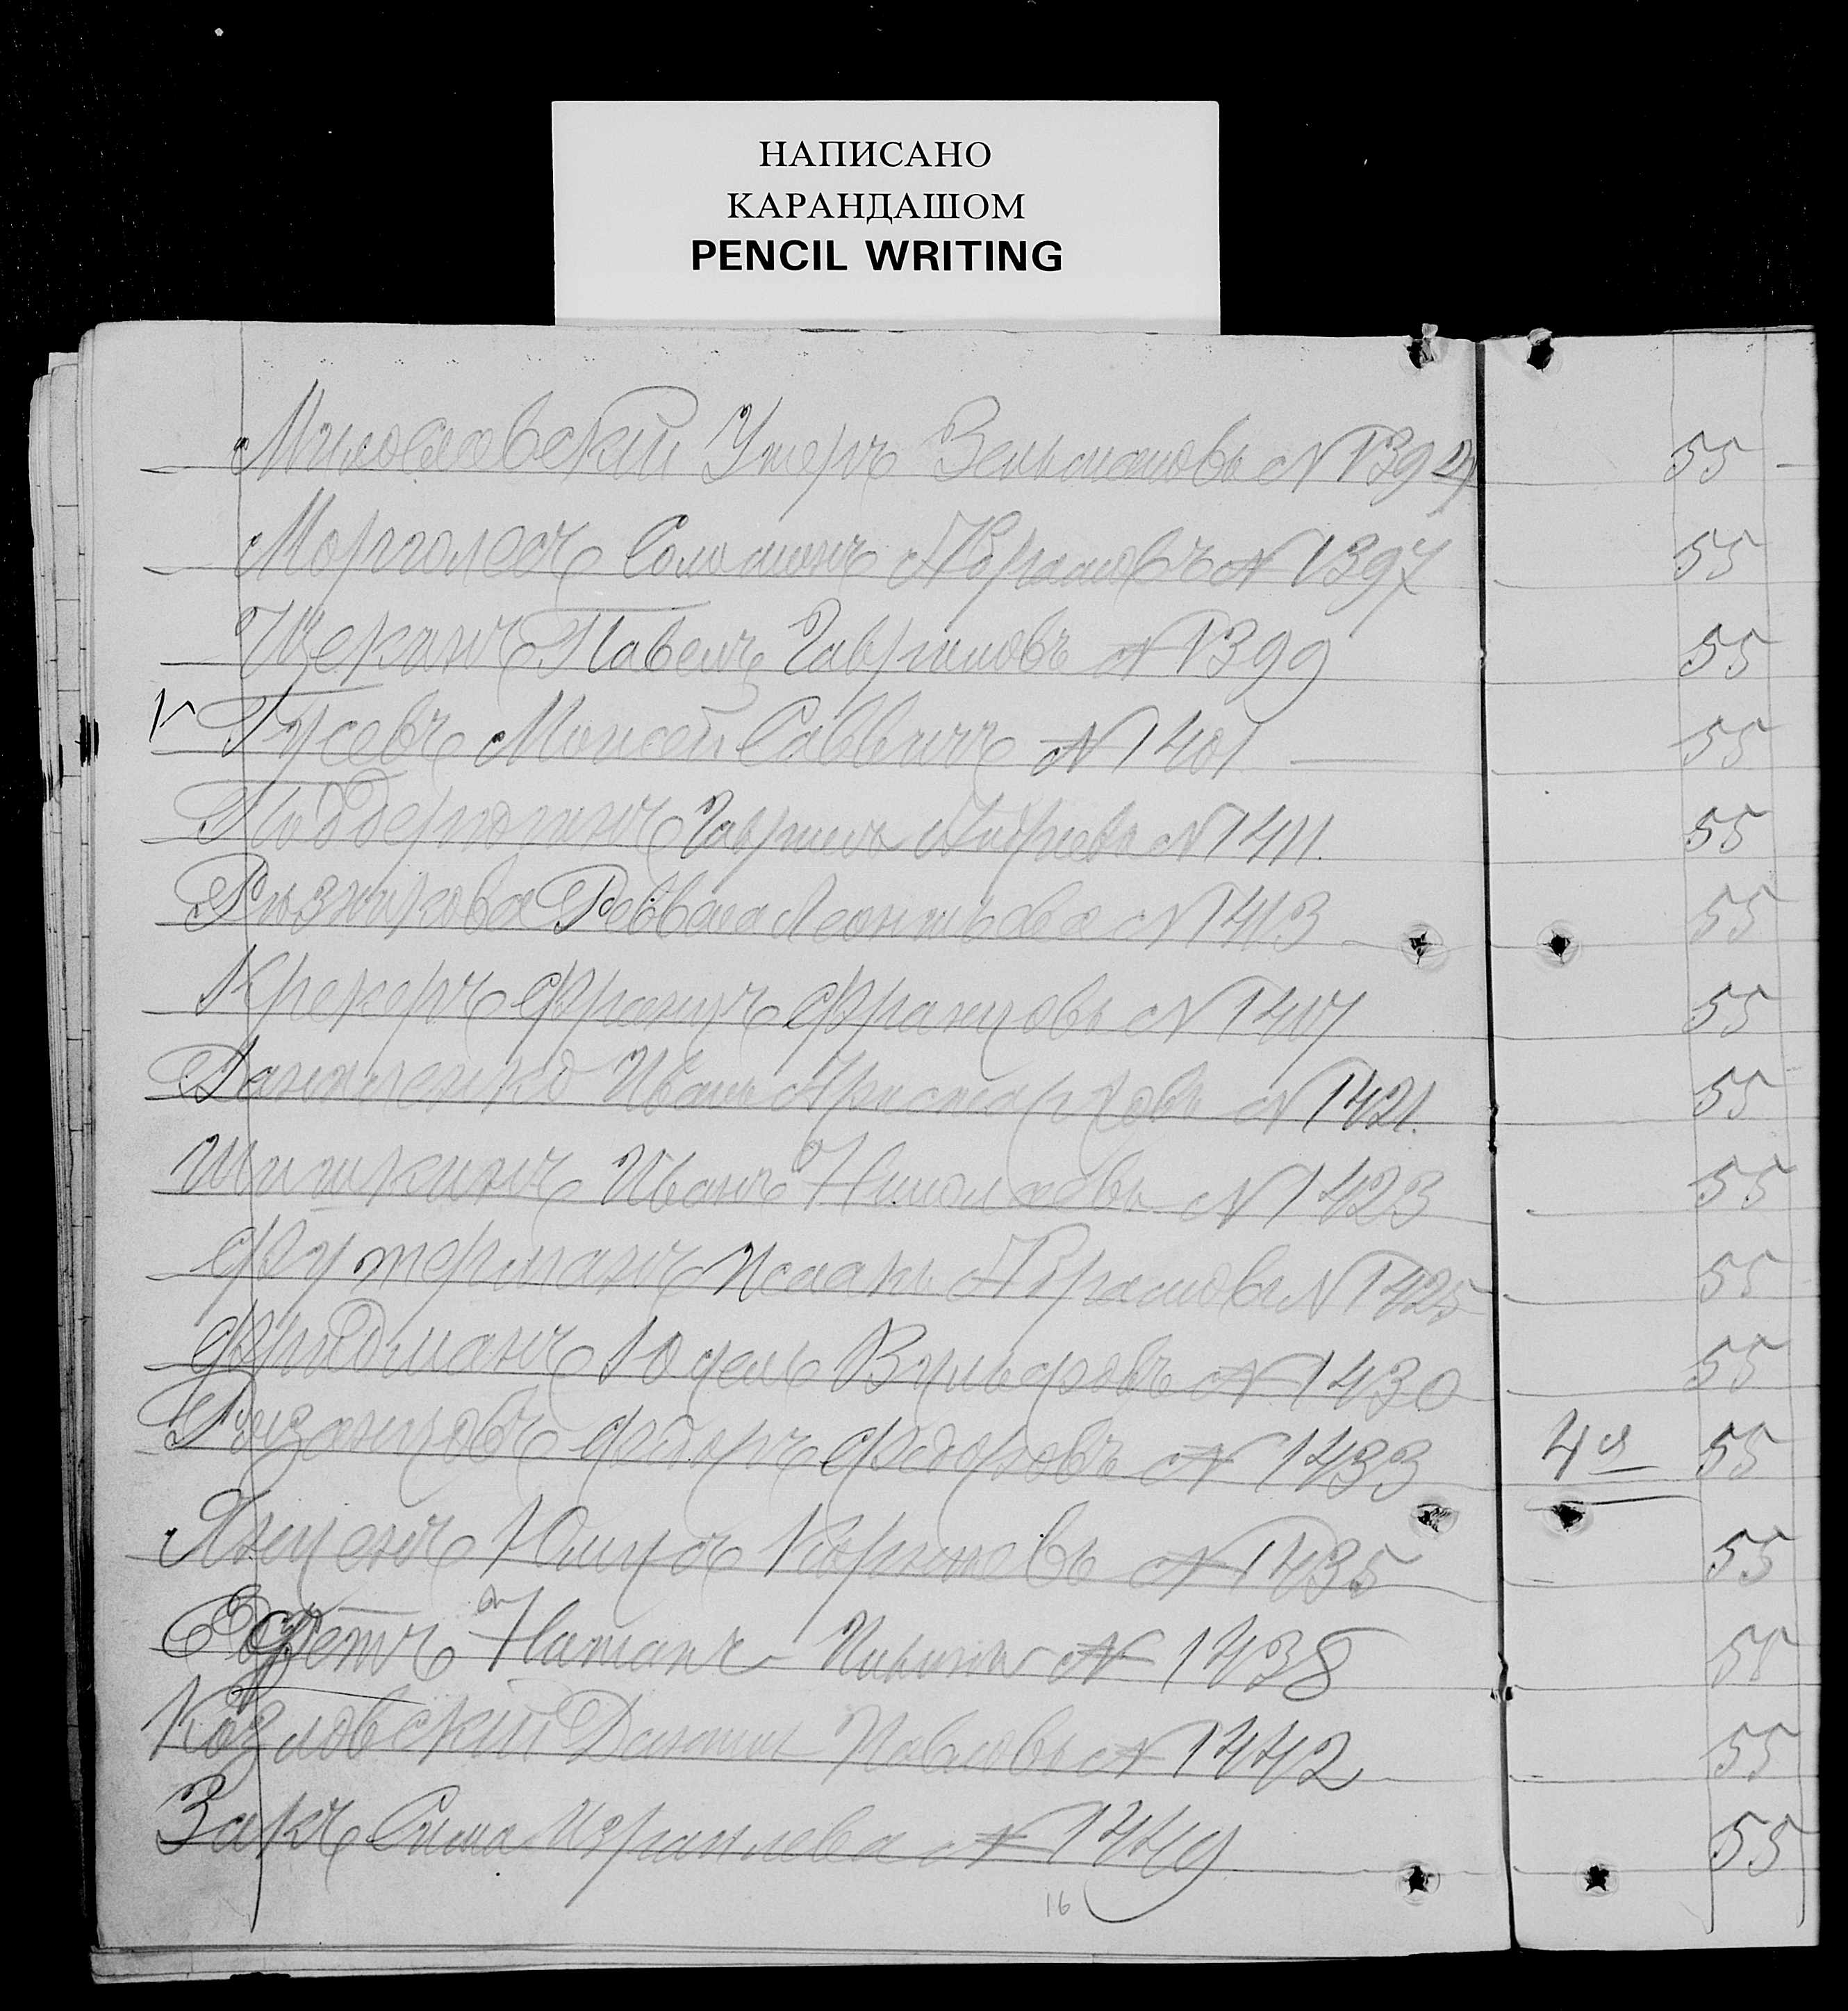 НАПИСАНО
КАРАНДАШОМ
PENCIL WRITING
Милославский Умеръ Зельмановъ № 1394 55
Марголесъ Соломонъ Абрамовъ № 1397 55
Щекинъ Павелъ Гавриловъ № 1399 55
Гусевъ Моисей Саввичъ № 1401 55
Гавріилъ № 1411. 55
Рѣзникова Ревекка Леонтьева № 1413 55
Крекеръ Францъ Францовъ № 1417 55
Даниленко Иванъ Аристарховъ № 1421. 55
Шишкинъ Иванъ Николаевъ № 1423 55
Футерманъ Исаакъ Абрамовъ № 1425 55
Фридманъ Юдель Вульфовъ № 1430 55
Рязанцовъ Федоръ Федоровъ № 1433 55
№ 1435 55
Натанъ № 1438 55
Козловскій Даніилъ Павловъ № 1442 55
Закъ Сима Израилева № 1449 55
16